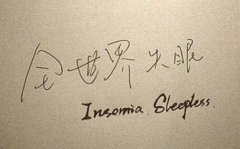 全世界失眠
Insomia Sleepless